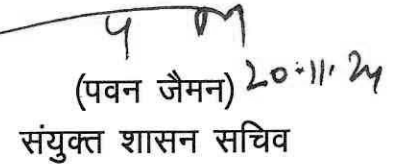 (पवन जैमन) 20.11.24
संयुक्त शासन सचिव